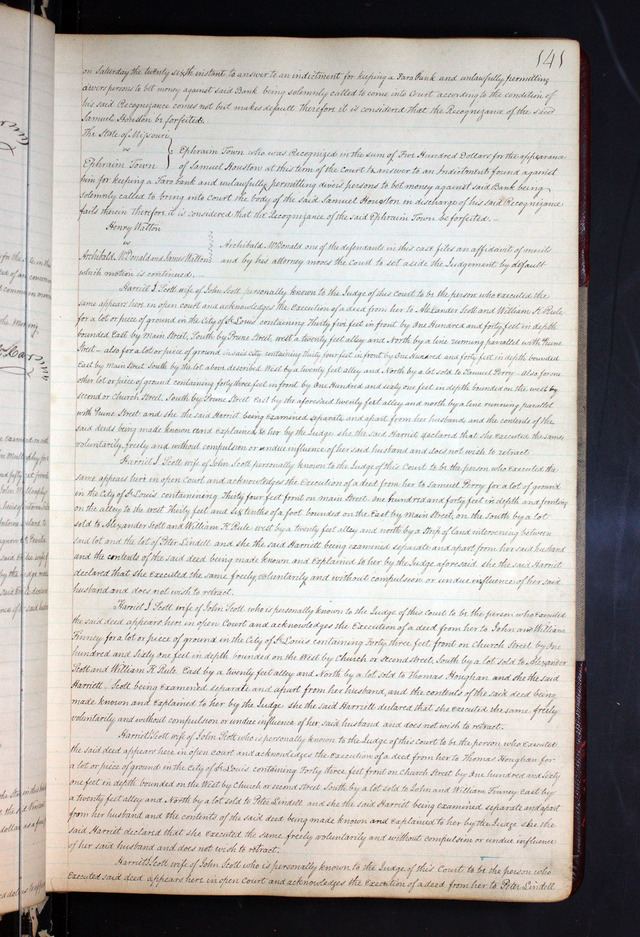 141
on Saturday the twenty sixth instant to answer to an indictment for keeping a Faro Bank and unlawfully permitting
divers persons to bet money against said Bank being solemnly called to come into Court according to the condition of
his said Recognizance comes not but makes default therefore it is considered that the Recognizance of the said
Samuel Houston be forfeited.
The State of Missouri
vs
Ephraim Town
Ephraim Town who was Recognized in the sum of Five Hundred Dollars for the appearance
of Samuel Houston at this term of the Court to answer to an Indictment found against
him for keeping a Faro bank and unlawfully permitting divers persons to bet money against said Bank being
solemnly called to bring into Court the body of the said Samuel Houston in discharge of his said Recognizance
fails therein therefore it is considered that the Recognizance of the said Ephraim Town be forfeited.
Henry Watton
vs
Archibald McDonald and James Watton
Archibald McDonald one of the defendants in this case files an affidavit of merits
and by his attorney moves the Court to set aside the Judgement by default
which motion is continued.
Harriet I. Scott wife of John Scott personally known to the Judge of this Court to be the person who executed the
same appears here in open court and acknowledges the Execution of a deed from her to Alexander Scott and William K. Rule
for a lot or piece of ground in the City of St Louis containing Thirty five feet in front by One Hundred and forty feet in depth
bounded East by Main Street, South by Prune Street, west a twenty feet alley and North by a line running parallel with Prune
Street - also for a lot or piece of ground in said city containing thirty four feet in front by One Hundred and forty feet in depth bounded
East by Main Street South by the lot above described West by a twenty feet alley and North by a lot sold to Samuel Perry - also for one
other lot or piece of ground containing forty three feet in front by One Hundred and sixty one feet in depth bounded on the west by
second or Church Street, South by Prune Street East by the aforesaid twenty feet alley and north by a line running parallel
with Prune Street and she the said Harriet being examined separate and apart from her husband, and the contents of the
said deeds being made known and explained to her by the Judge she the said Harriet declared that she executed the same
voluntarily, freely and without compulsion or undue influence of her said husband and does not wish to retract.
Harriet I. Scott wife of John Scott personally known to the Judge of this Court to be the person who executed the
same appears here in open court and acknowledges the Execution of a deed from her to Samuel Perry for a lot of ground
in the City of St Louis containing Thirty four feet front on Main Street, one hundred and forty feet in depth and fronting
on the alley to the west Thirty feet and six tenths of a foot bounded on the East by Main Street, on the South by a lot
sold to Alexander Scott and William K. Rule west by a twenty feet alley and north by a strip of land intervening between
said lot and the lot of Peter Lindell and she the said Harriett being examined separate and apart from her said husband
and the contents of the said deed being made known and explained to her by the Judge aforesaid she the said Harriet
declared that she executed the same freely, voluntarily and without compulsion or undue influence of her said
husband and does not wish to retract.
Harriet I. Scott wife of John Scott who is personally known to the Judge of this Court to be the person who Executed
the said deed appears here in open Court and acknowledges the Execution of a deed from her to John and William
Finney for a lot or piece of ground in the City of St Louis containing Forty three feet front on Church Street by One
hundred and sixty one feet in depth bounded on the West by Church or second street, South by a lot sold to Alexander
Scott and William K. Rule East by a twenty feet alley and North by a lot sold to Thomas Houghan and she the said
Harriett Scott being examined separate and apart from her husband, and the contents of the said deed being
made known and explained to her by the Judge she the said Harriett declared that she executed the same freely
voluntarily and without compulsion or undue influence of her said husband and does not wish to retract.
Harriet Scott wife of John Scott who is personally known to the Judge of this court to be the person who executed
the said deed appears here in open court and acknowledges the execution of a deed from her to Thomas Houghan for
a lot or piece of ground in the City of St Louis containing Forty three feet front on Church Street by one hundred and sixty
one feet in depth bounded on the West by Church or second street South by a lot sold to John and William Finney East by
a twenty feet alley and North by a lot sold to Peter Lindell and she the said Harriet being examined separate and apart
from her husband and the contents of the said deed being made known and explained to her by the Judge she the
said Harriet declared that she executed the same freely voluntarily and without compulsion or undue influence
of her said husband and does not wish to retract.
Harriet Scott wife of John Scott who is personally known to the Judge of this Court to be the person who
Executed said deed appears here in open Court and acknowledges the Execution of a deed from her to Peter Lindell